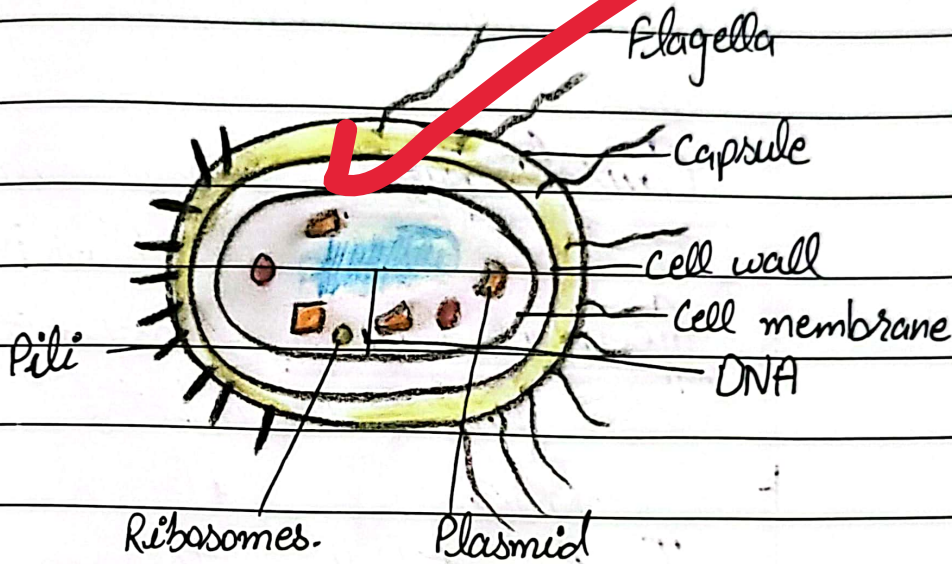 Flagella
Capsule
Cell wall
Cell membrane
DNA
Pili
Ribosomes.
Plasmid